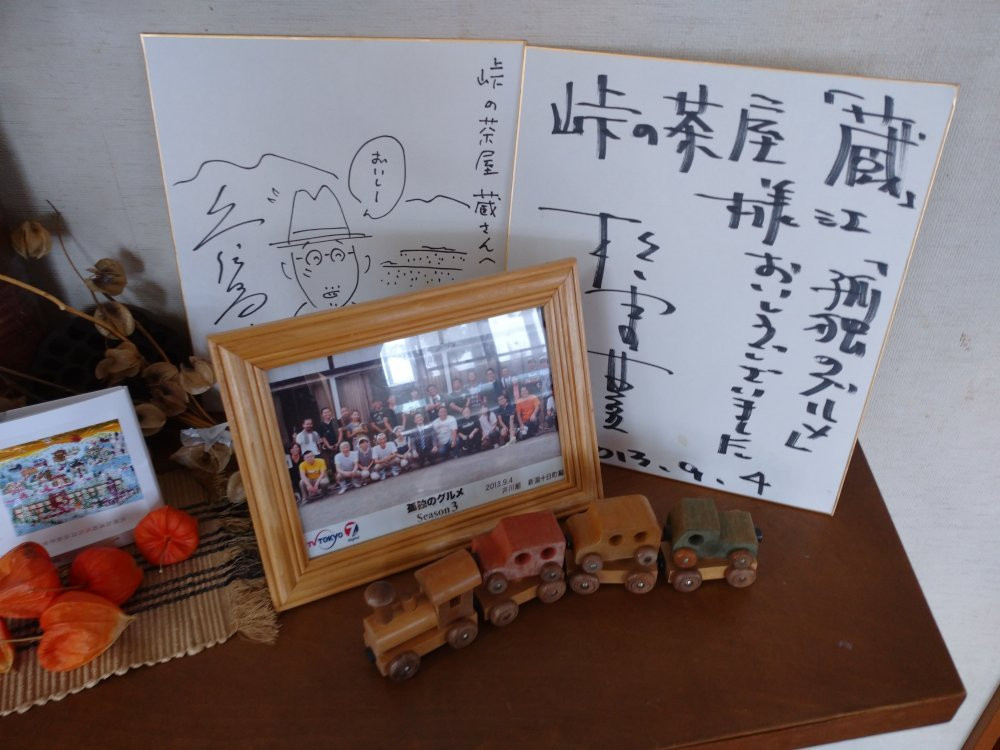 峠の茶屋 蔵さんへ
おいしーん
「蔵」江「孤独のグルメ」
峠の茶屋様
おいしうございました
2013.9.4
孤独のグルメ
Season 3
2013.9.4
新潟十日町編
TV TOKYO 7